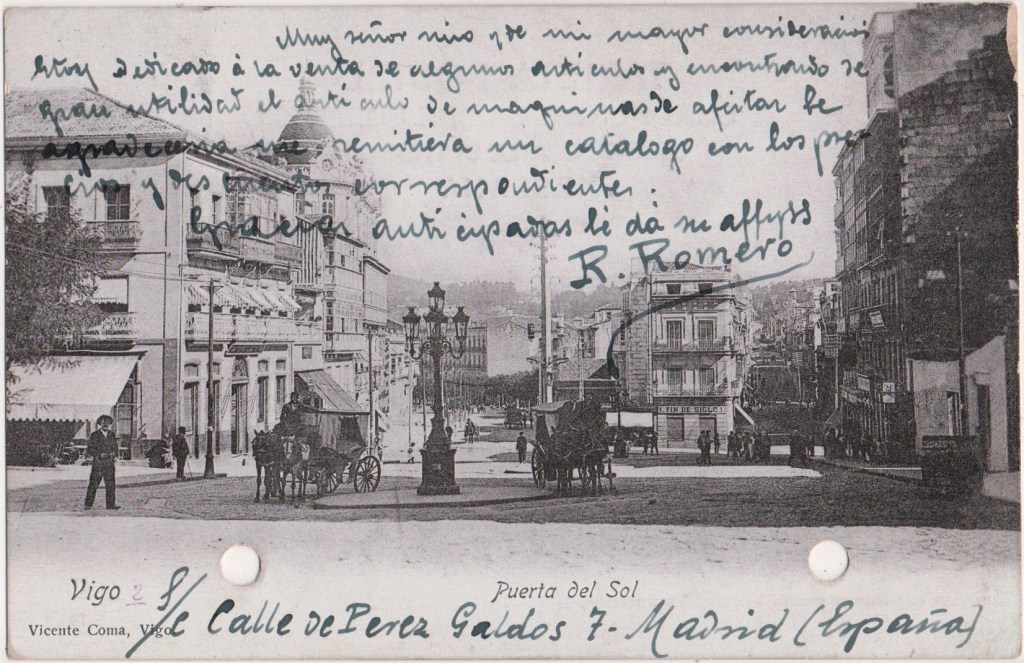 Muy señor mio y de mi mayor consideración
Estoy dedicado á la venta de algunos articulos y encontrando de
gran utilidad el articulo de maquinas de afeitar le
agradeceria me remitiera un catalogo con los pre-
cios y descuentos correspondientes.
Gracias anticipadas le dá su affmo
R. Romero
FIN DE SIGLO
Vigo 2
Puerta del Sol
Vicente Coma, Vigo
S/c Calle de Perez Galdos 7- Madrid (España)